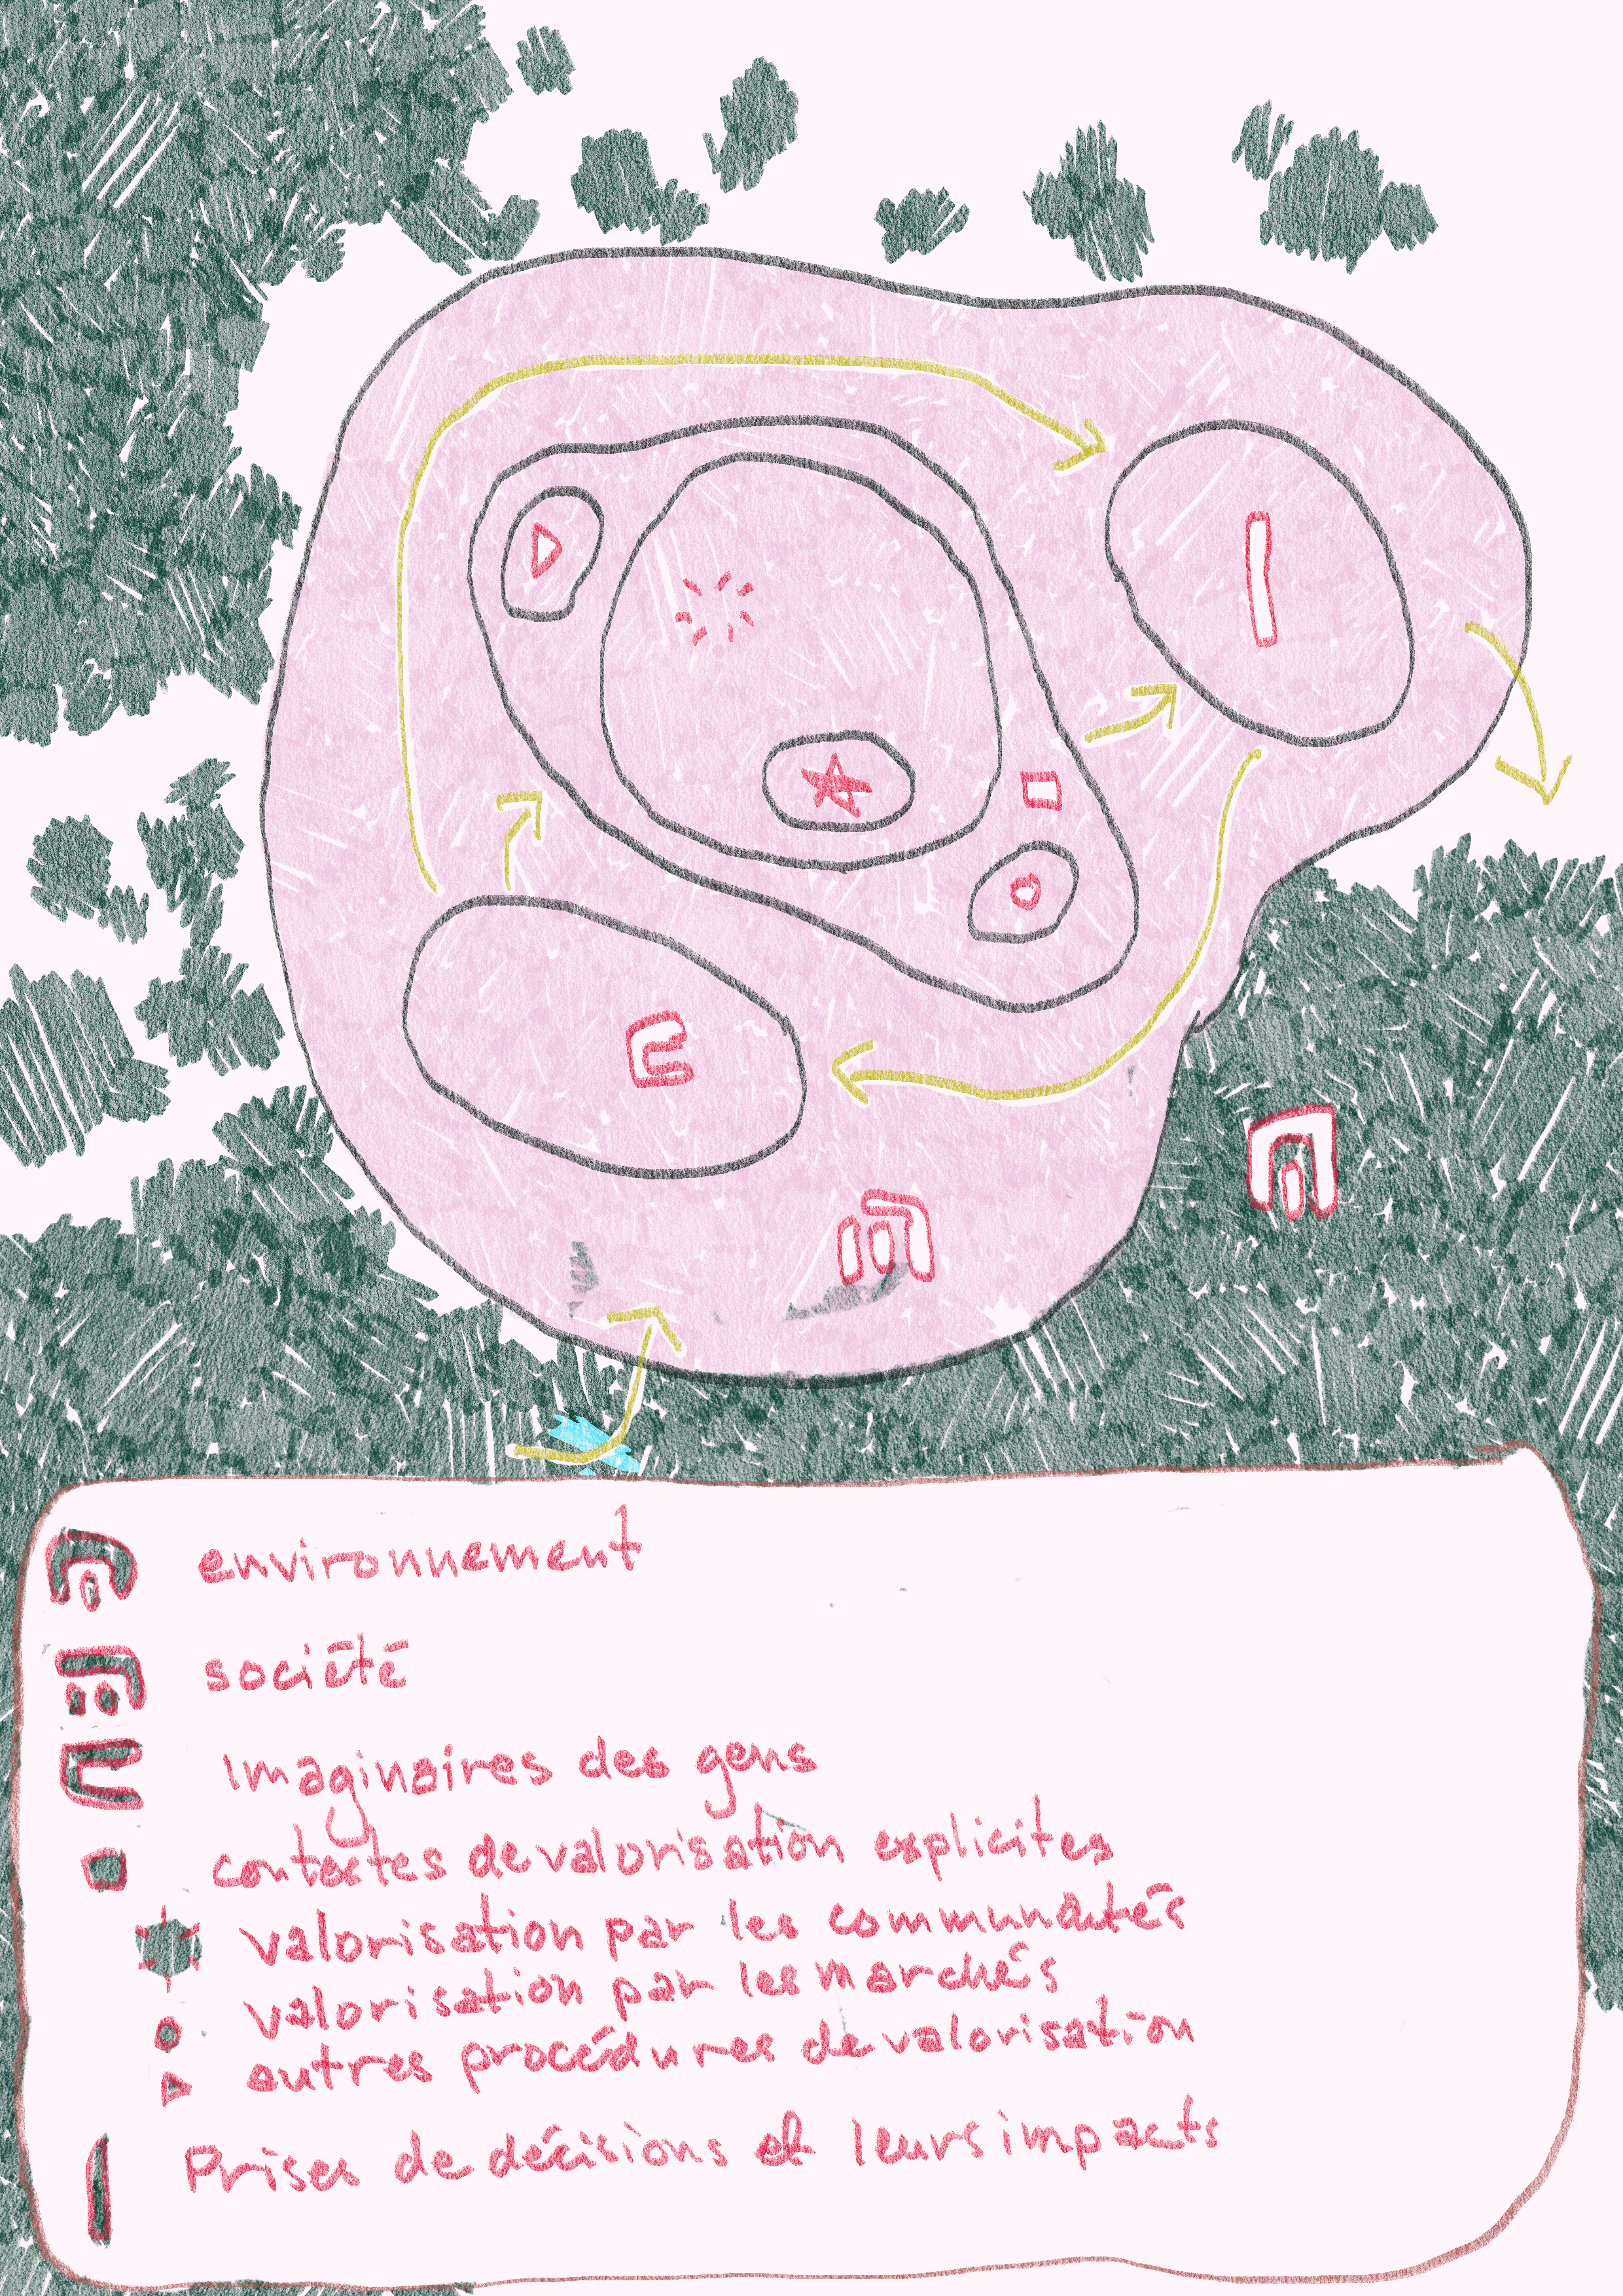 environnement
société
Imaginaires des gens
contextes de valorisation explicites
valorisation par les communautés
valorisation par les marchés
autres procédures de valorisation
Prises de décisions et leurs impacts